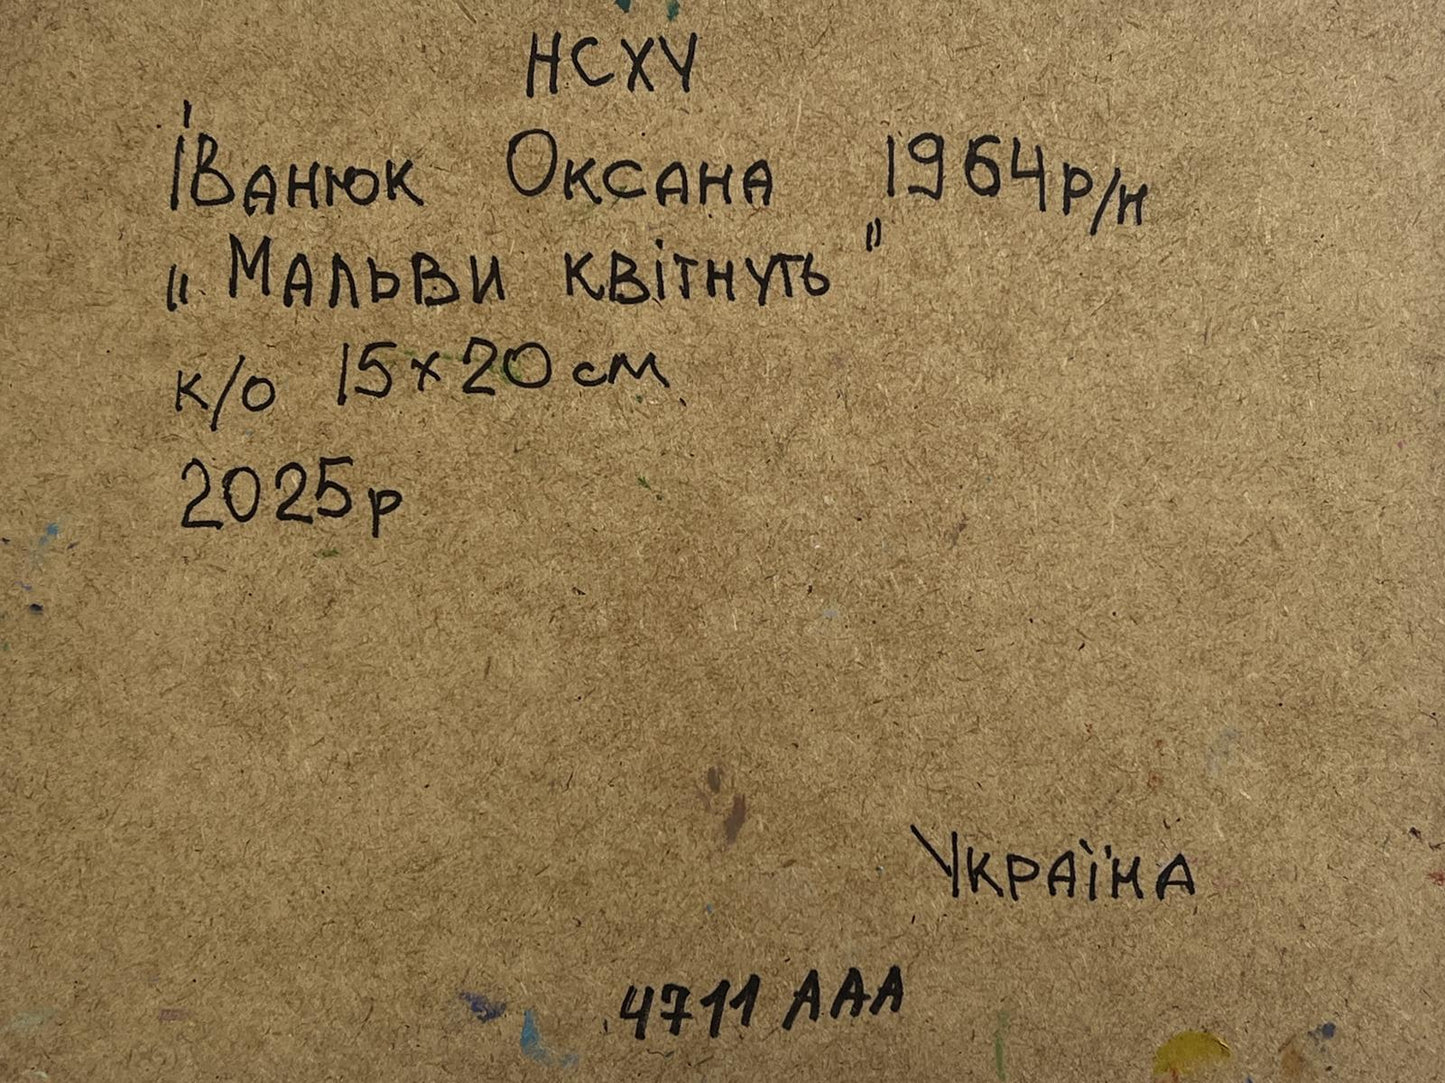 НСХУ
Іванюк Оксана 1964 р/н
„Мальви квітнуть"
к/о 15×20 см
2025 р
Україна
4711 ААА